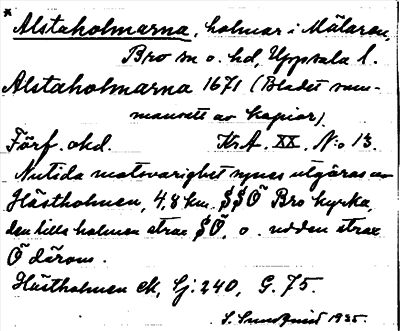 * Alstaholmarna, holmar i Mälaren,
Bro sn o. hd, Uppsala l.
Alstaholmarna 1671 (Bladet sam-
mansatt av kopior).
Förf. okd. KrA. XX. N:o 13.
Nutida motsvarighet synes utgöras av
Hästholmen, 4,8 km. SSÖ Bro kyrka,
den lilla holmen strax SÖ, o. udden strax
Ö därom.
Hästholmen ek, Gj. 240, G. 75.
S. Sundqvist 1935.